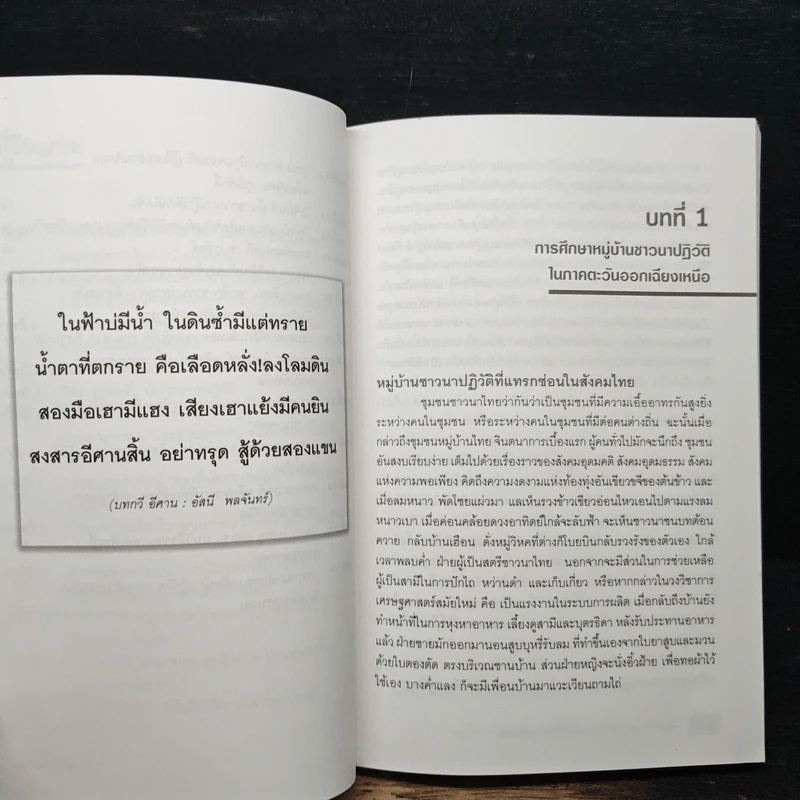 ในฟ้าบ่มีน้ำ ในดินซ้ำมีแต่ทราย
น้ำตาที่ตกราย คือเลือดหลั่ง!ลงโลมดิน
สองมือเฮามีแฮง เสียงเฮาแย้งมีคนยิน
สงสารอีศานสิ้น อย่าทรุด สู้ด้วยสองแขน
(บทกวี อีศาน : อัสนี พลจันทร์)
บทที่ 1
การศึกษาหมู่บ้านชาวนาปฏิวัติ
ในภาคตะวันออกเฉียงเหนือ
หมู่บ้านชาวนาปฏิวัติที่แทรกซ่อนในสังคมไทย
ชุมชนชาวนาไทยว่ากันว่าเป็นชุมชนที่มีความเอื้ออาทรกันสูงยิ่ง
ระหว่างคนในชุมชน หรือระหว่างคนในชุมชนที่มีต่อคนต่างถิ่น ฉะนั้นเมื่อ
กล่าวถึงชุมชนหมู่บ้านไทย จินตนาการเบื้องแรก ผู้คนทั่วไปมักจะนึกถึง ชุมชน
อันสงบเรียบง่าย เต็มไปด้วยเรื่องราวของสังคมอุดมคติ สังคมอุดมธรรม สังคม
แห่งความพอเพียง คิดถึงความงดงามแห่งท้องทุ่งอันเขียวขจีของต้นข้าว และ
เมื่อลมหนาว พัดโชยแผ่วมา แลเห็นรวงข้าวเขียวอ่อนไหวเอนไปตามแรงลม
หนาวเบา เมื่อค่อนคล้อยดวงอาทิตย์ใกล้จะลับฟ้า จะเห็นชาวนาชนบทต้อน
ควาย กลับบ้านเฮือน ดั่งหมู่วิหคที่ต่างก็โบยบินกลับรวงรังของตัวเอง ใกล้
เวลาพลบค่ำ ฝ่ายผู้เป็นสตรีชาวนาไทย นอกจากจะมีส่วนในการช่วยเหลือ
ผู้เป็นสามีในการปักไถ หว่านดำ และเก็บเกี่ยว หรือหากกล่าวในวงวิชาการ
เศรษฐศาสตร์สมัยใหม่ คือ เป็นแรงงานในระบบการผลิต เมื่อกลับถึงบ้านยัง
ทำหน้าที่ในการหุงหาอาหาร เลี้ยงดูสามีและบุตรธิดา หลังรับประทานอาหาร
แล้ว ฝ่ายชายมักออกมานอนสูบบุหรี่รับลม ที่ทำขึ้นเองจากใบยาสูบและมวน
ด้วยใบตองตัด ตรงบริเวณชานบ้าน ส่วนฝ่ายหญิงจะนั่งอิ้วฝ้าย เพื่อทอผ้าไว้
ใช้เอง บางค่ำแลง ก็จะมีเพื่อนบ้านมาแวะเวียนถามไถ่